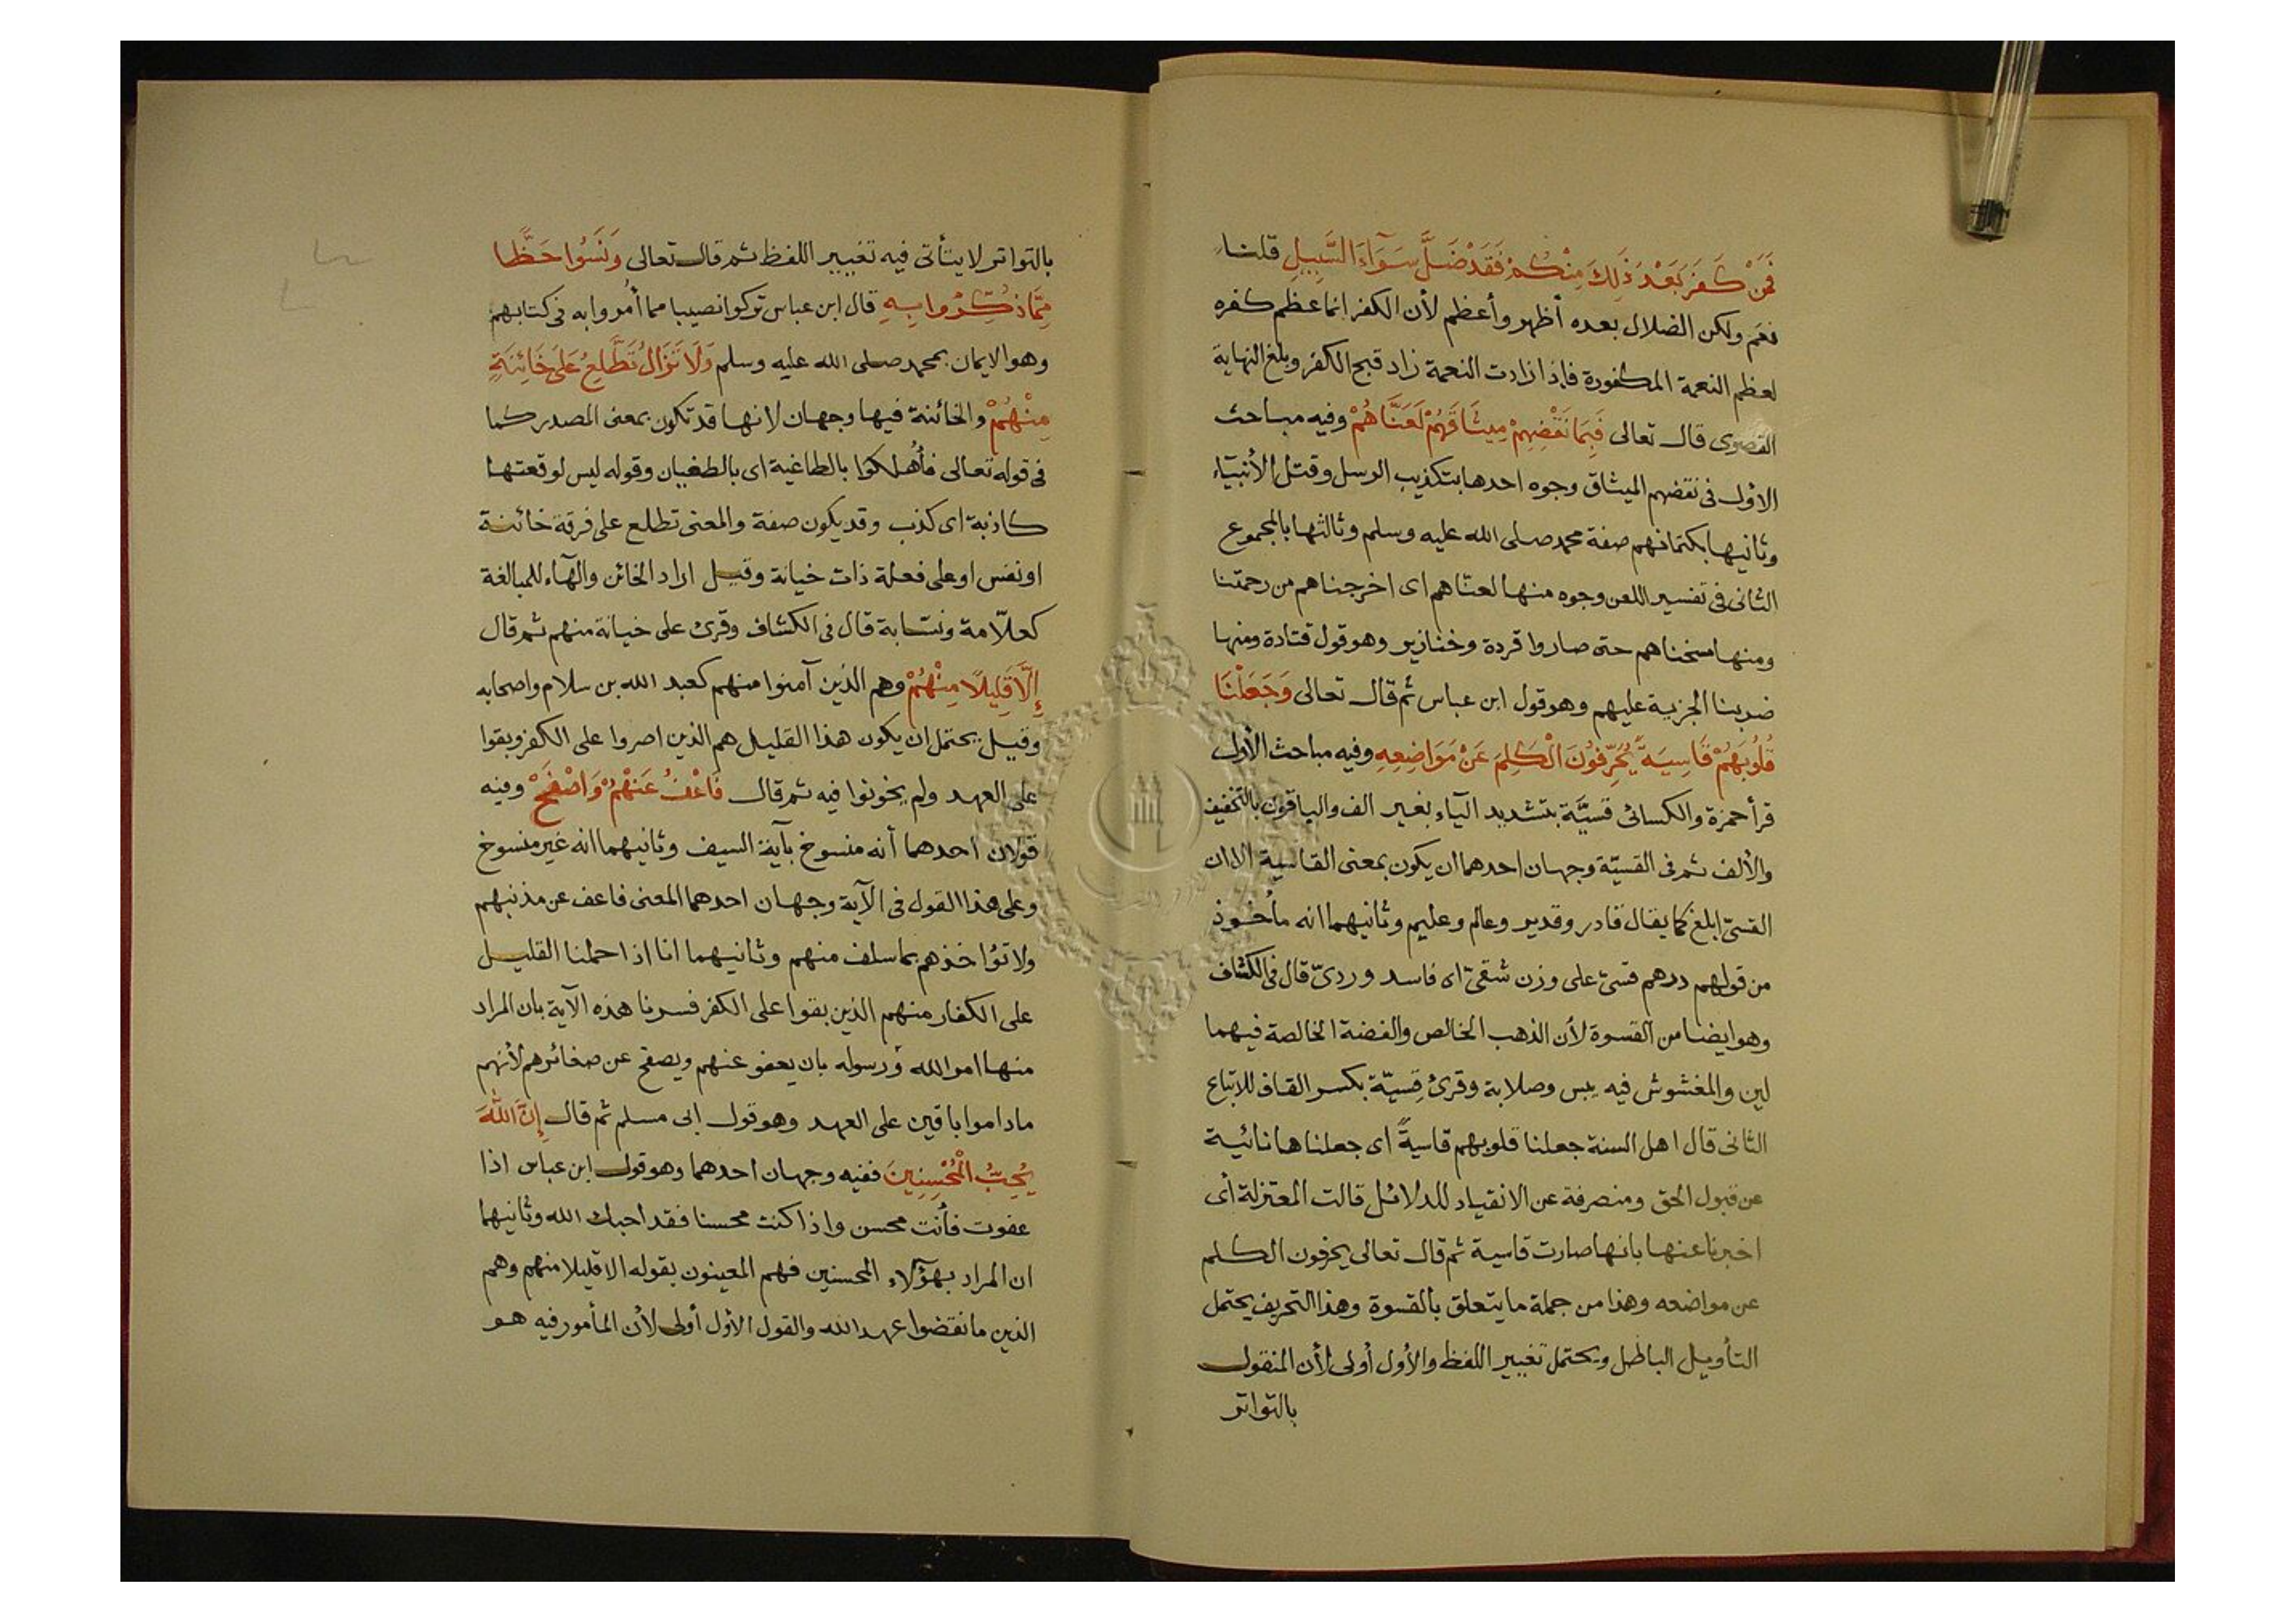 فَمَنْ كَفَرَ بَعْدَ ذَلِكَ مِنْكُمْ فَقَدْ ضَلَّ سَوَآءَ السَّبِيلِ قلنا
نعم ولكن الضلال بعده أظهر وأعظم لأن الكفر انما عظم كفره
لعظم النعمة المكفورة فاذا زادت النعمة زاد قبح الكفر وبلغ النهاية
القصوى قال تعالى فَبِمَا نَقْضِهِمْ مِيثَاقَهُمْ لَعَنَّاهُمْ وفيه مباحث
الاول فى نقضهم الميثاق وجوه احدها بتكذيب الرسل وقتل الأنبياء
وثانيها بكتمانهم صفة محمد صلى الله عليه وسلم وثالثها بالمجموع
الثانى فى تفسير اللعن وجوه منها لعناهم اى اخرجناهم من رحمتنا
ومنها مسخناهم حتى صاروا قردة وخنازير وهو قول قتادة ومنها
ضربنا الجزية عليهم وهو قول ابن عباس ثم قال تعالى وَجَعَلْنَا
قُلُوبَهُمْ قَاسِيَةً يُحَرِّفُونَ الْكَلِمَ عَنْ مَوَاضِعِهِ وفيه مباحث الأول
قرأ حمزة والكسائى قسيَّة بتشديد اليآء بغير الف والباقون بالتخفيف
والألف ثم فى القسيّة وجهان احدهما ان يكون بمعنى القاسية الا ان
القسىّ ابلغ كما يقال قادر وقدير وعالم وعليم وثانيهما انه مأخوذ
من قولهم درهم قسىّ على وزن شقىّ اى فاسد وردىّ قال فى الكشاف
وهو ايضا من القسوة لأن الذهب الخالص والفضة الخالصة فيهما
لين والمغشوش فيه يبس وصلابة وقرئ قِسيّة بكسر القاف للاتباع
الثانى قال اهل السنة جعلنا قلوبهم قاسيةً اى جعلناها نائية
عن قبول الحق ومنصرفة عن الانقياد للدلائل قالت المعتزلة أى
اخبرنا عنها بانها صارت قاسية ثم قال تعالى يحرفون الكلم
عن مواضعه وهذا من جملة ما يتعلق بالقسوة وهذا التحريف يحتمل
التأويل الباطل ويحتمل تغيير اللفظ والأول أولى لأن المنقول
بالتواتر
بالتواتر لا يتأتى فيه تغيير اللفظ ثم قال تعالى وَنَسُوا حَظًّا
مِمَّا ذُكِّرُوا بِهِ قال ابن عباس تركوا نصيبا مما أُمروا به فى كتابهم
وهو الايمان بمحمد صلى الله عليه وسلم وَلَا تَزَالُ تَطَّلِعُ عَلَى خَائِنَةٍ
مِنْهُمْ والخائنة فيها وجهان لانها قد تكون بمعنى المصدر كما
فى قوله تعالى فأُهلكوا بالطاغية اى بالطغيان وقوله ليس لوقعتها
كاذبة اى كذب وقد يكون صفة والمعنى تطلع على فرقة خائنة
او نفس او على فعلة ذات خيانة وقيل اراد الخائن والهآء للمبالغة
كعلّامة ونسّابة قال فى الكشاف وقرئ على خيانة منهم ثم قال
إِلَّا قَلِيلًا مِنْهُمْ وهم الذين آمنوا منهم كعبد الله بن سلام واصحابه
وقيل يحتمل ان يكون هذا القليل هم الذين اصروا على الكفر وبقوا
على العهد ولم يخونوا فيه ثم قال فَاعْفُ عَنْهُمْ وَاصْفَحْ وفيه
قولان احدهما أنه منسوخ بآية السيف وثانيهما انه غير منسوخ
وعلى هذا القول فى الآية وجهان احدهما المعنى فاعف عن مذنبهم
ولا تؤاخذهم بما سلف منهم وثانيهما انا اذا حملنا القليل
على الكفار منهم الذين بقوا على الكفر فسرنا هذه الآية بان المراد
منها امر الله ورسوله بان يعفو عنهم ويصفح عن صغائرهم لأنهم
ما داموا باقين على العهد وهو قول ابى مسلم ثم قال إِنَّ اللَّهَ
يُحِبُّ الْمُحْسِنِينَ ففيه وجهان احدهما وهو قول ابن عباس اذا
عفوت فأنت محسن واذا كنت محسنا فقد احبك الله وثانيهما
ان المراد بهؤلاء المحسنين فهم المعينون بقوله الا قليلا منهم وهم
الذين ما نقضوا عهد الله والقول الأول أولى لأن المأمور فيه هو